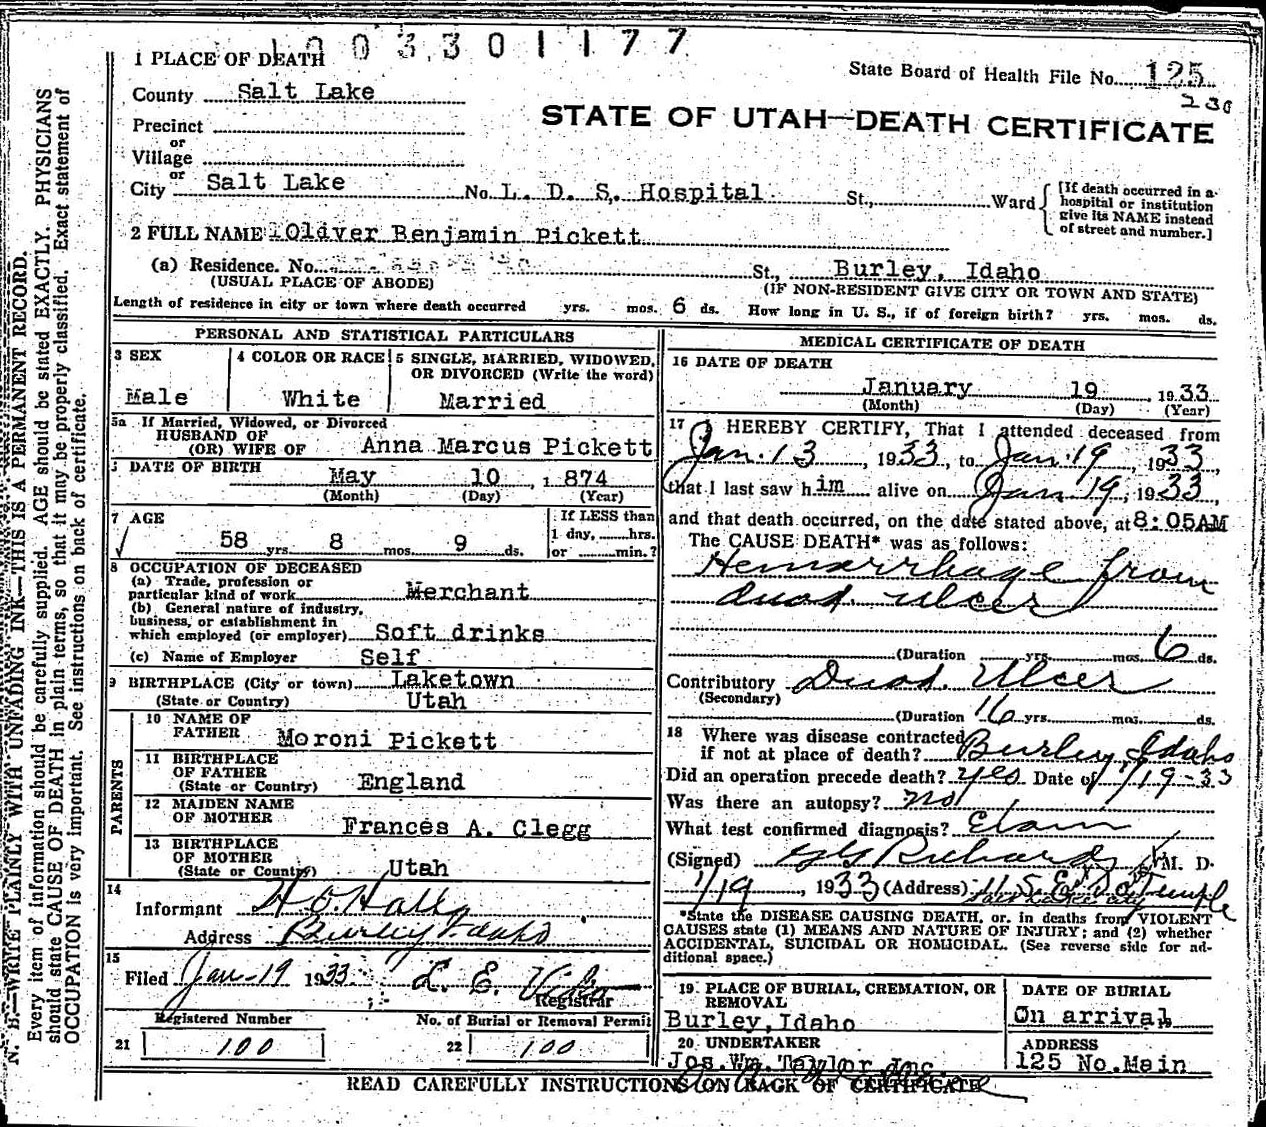 1003301177
1 PLACE OF DEATH
State Board of Health File No. 125
230
County Salt Lake
STATE OF UTAH—DEATH CERTIFICATE
Precinct
or
Village
or
City Salt Lake No. L. D. S. Hospital St., Ward
[If death occurred in a hospital or institution give its NAME instead of street and number.]
2 FULL NAME Oliver Benjamin Pickett
(a) Residence. No. St., Burley, Idaho
(USUAL PLACE OF ABODE) (IF NON-RESIDENT GIVE CITY OR TOWN AND STATE)
Length of residence in city or town where death occurred yrs. mos. 6 ds. How long in U. S., if of foreign birth? yrs. mos. ds.
PERSONAL AND STATISTICAL PARTICULARS
3 SEX
Male
4 COLOR OR RACE
White
5 SINGLE, MARRIED, WIDOWED,
OR DIVORCED (Write the word)
Married
5a If Married, Widowed, or Divorced
HUSBAND OF
(OR) WIFE OF Anna Marcus Pickett
DATE OF BIRTH May 10, 1874
(Month) (Day) (Year)
7 AGE
58 yrs. 8 mos. 9 ds.
If LESS than
1 day, hrs.
or min.?
8 OCCUPATION OF DECEASED
(a) Trade, profession or
particular kind of work Merchant
(b) General nature of industry,
business, or establishment in
which employed (or employer) Soft drinks
(c) Name of Employer Self
9 BIRTHPLACE (City or town) Laketown
(State or Country) Utah
PARENTS
10 NAME OF
FATHER Moroni Pickett
11 BIRTHPLACE
OF FATHER
(State or Country) England
12 MAIDEN NAME
OF MOTHER Frances A. Clegg
13 BIRTHPLACE
OF MOTHER
(State or Country) Utah
14
Informant H.O. Hall
Address Burley Idaho
15
Filed Jan-19 1933 L. E.
Registrar
Registered Number
21 100
No. of Burial or Removal Permit
22 100
MEDICAL CERTIFICATE OF DEATH
16 DATE OF DEATH
January 19, 1933
(Month) (Day) (Year)
17 I HEREBY CERTIFY, That I attended deceased from
Jan. 13, 1933, to Jan. 19, 1933,
that I last saw him alive on Jan 19, 1933,
and that death occurred, on the date stated above, at 8:05AM
The CAUSE DEATH* was as follows:
Hemorrhage from
duod. ulcer
(Duration yrs. mos. 6 ds.
Contributory Duod. Ulcer
(Secondary)
(Duration 16 yrs. mos. ds.
18 Where was disease contracted
if not at place of death? Burley, Idaho
Did an operation precede death? yes Date of 1/19-33
Was there an autopsy? no
What test confirmed diagnosis? Exam
(Signed) Richards M. D.
1/19, 1933 (Address) Temple
*State the DISEASE CAUSING DEATH, or, in deaths from VIOLENT
CAUSES state (1) MEANS AND NATURE OF INJURY; and (2) whether
ACCIDENTAL, SUICIDAL OR HOMICIDAL. (See reverse side for ad-
ditional space.)
19 PLACE OF BURIAL, CREMATION, OR
REMOVAL
Burley, Idaho
DATE OF BURIAL
On arrival
20 UNDERTAKER
Jos. Wm. Taylor Inc.
ADDRESS
125 No. Main
READ CAREFULLY INSTRUCTIONS ON BACK OF CERTIFICATE
N. B.—WRITE PLAINLY WITH UNFADING INK—THIS IS A PERMANENT RECORD.
Every item of information should be carefully supplied. AGE should be stated EXACTLY. PHYSICIANS
should state CAUSE OF DEATH in plain terms, so that it may be properly classified. Exact statement of
OCCUPATION is very important. See instructions on back of certificate.